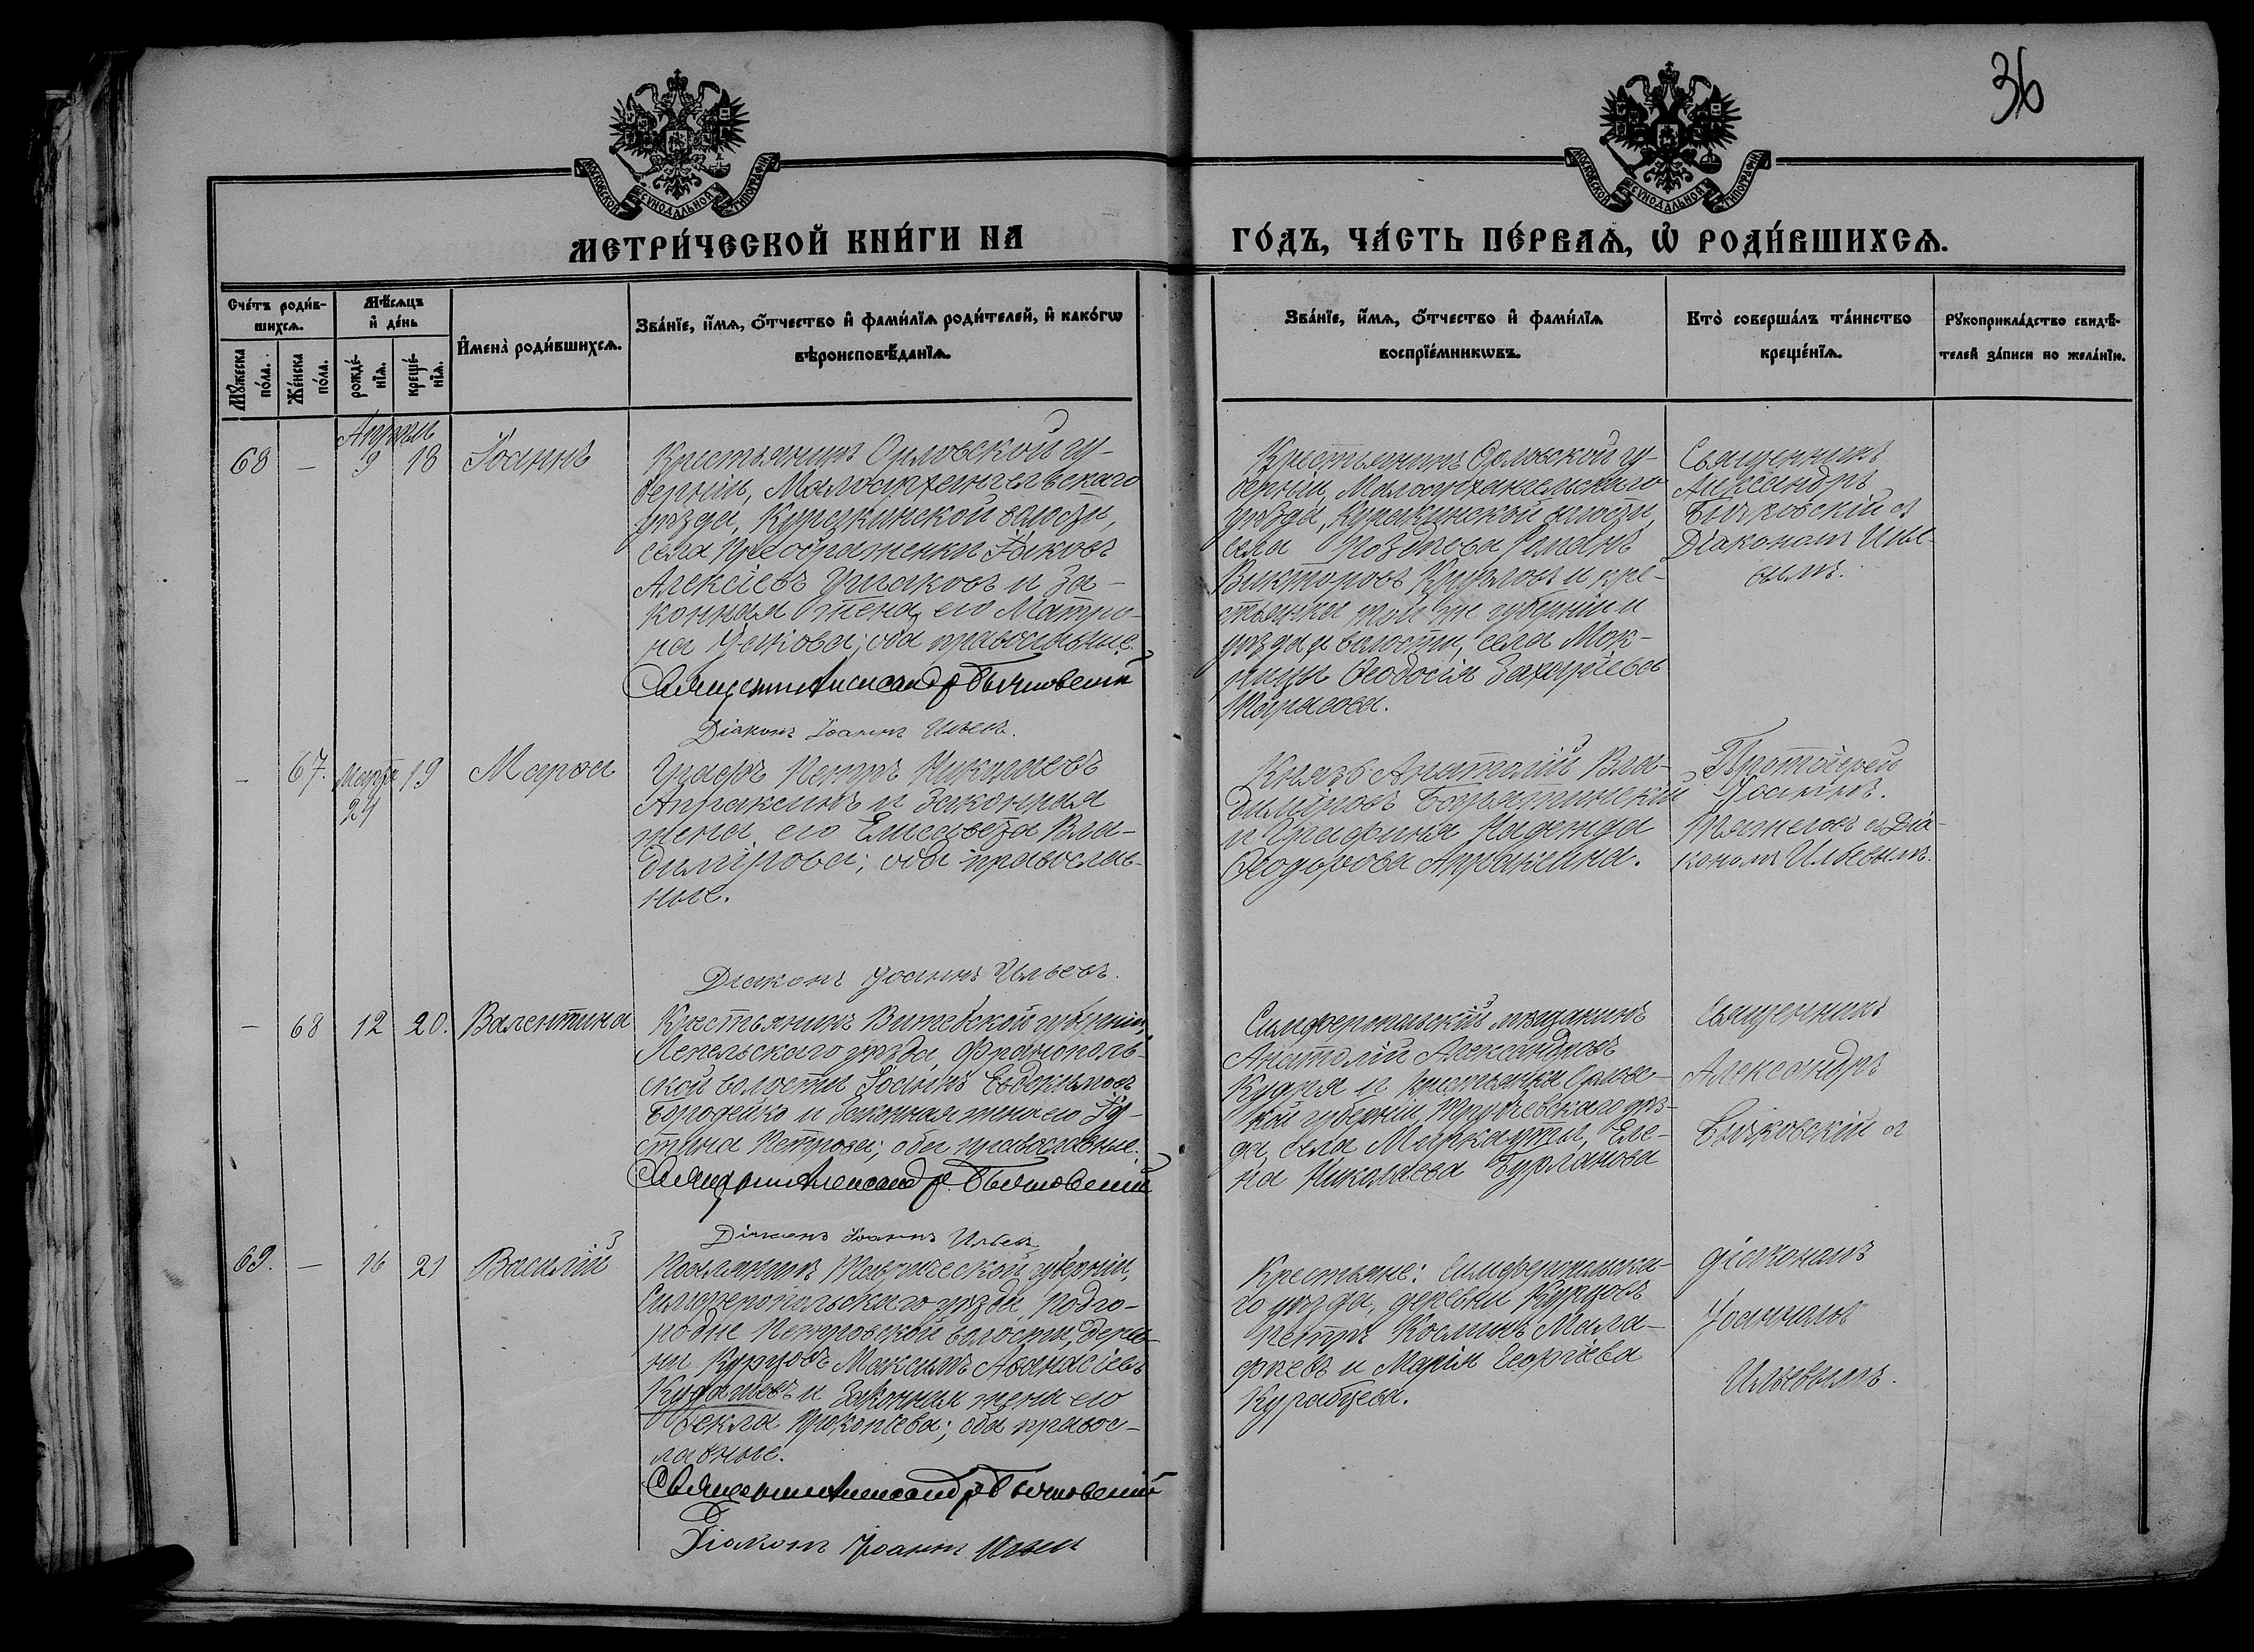 36
МОСКОВСКОЙ СѴНОДАЛЬНОЙ ТИПОГРАФІИ
МОСКОВСКОЙ СѴНОДАЛЬНОЙ ТИПОГРАФІИ
МЕТРИ́ЧЕСКОЙ КНИ́ГИ НА
ГО́ДЪ, ЧА́СТЬ ПЕ́РВАѦ, Ѽ РОДИ́ВШИХСѦ.
Сче́тъ роди́в-
шихсѧ.
Мѣ́сѧцъ
и҆ де́нь
Мꙋ́жеска
по́ла.
Же́нска
по́ла.
рожде́-
нїѧ.
креще́-
нїѧ.
И҆мена̀ роди́вшихсѧ.
Зва́нїе, и҆́мѧ, ѻ҆́тчество и҆ фами́лїѧ роди́телей, и҆ како́гѡ
вѣроисповѣ́данїѧ.
Зва́нїе, и҆́мѧ, ѻ҆́тчество и҆ фами́лїѧ
воспрїе́мникѡвъ.
Кто̀ соверша́лъ та́инство
креще́нїѧ.
Рꙋкоприкла́дство свидѣ́-
телей за́писи по жела́нїю.
Апрѣль
68 — 9 18 Іоаннъ
Крестьянинъ Орловской гу-
берніи, Малоархангельскаго
уѣзда, Куракинской волости,
села Преображенки Іаковъ
Алексіевъ Ушаковъ и за-
конная жена его Матро-
на Іаковова; оба православные.
Священникъ Александръ Бычковскій
Діаконъ Іоаннъ Ильевъ.
Крестьянинъ Орловской гу-
берніи, Малоархангельскаго
уѣзда, Куракинской волости,
села Романъ
Викторовъ Кругловъ и кре-
стьянка той же губерніи и
уѣзда и волости, села Мок-
рицы Ѳеодосія Захаріева
Тарасова.
Священникъ
Александръ
Бычковскій съ
Діакономъ Илье-
вымъ.
— 67. Марта 19 Марѳа
24
Графъ Петръ Николаевъ
Апраксинъ и законная
жена его Елисавета Вла-
димірова; оба православ-
ные.
Діаконъ Іоаннъ Ильевъ.
Князь Анатолій Вла-
диміровъ Барятинскій
и Графиня Надежда
Ѳеодорова Апраксина.
Протоіерей
Іоаннъ.
Тяжеловъ съ Діа-
кономъ Ильевымъ.
— 68 12 20. Валентина
Крестьянинъ Витебской губерніи,
Лепельскаго уѣзда, Францополь-
ской волости Іоаннъ Евдокимовъ
Бородейко и законная жена его Іу-
стина Петрова; оба православные.
Священникъ Александръ Бычковскій
Діаконъ Іоаннъ Ильевъ
Симферопольскій мѣщанинъ
Анатолій Александровъ
Кудря и крестьянка Орлов-
ской губерніи, Трубчевскаго уѣз-
да, села Еле-
на Николаева Бурланова
Священникъ
Александръ
Бычковскій съ
69. — 16 21 Василій
Поселянинъ Таврической губерніи,
Симферопольскаго уѣзда, Подго-
родне Петровской волости, дерев-
ни Курцовъ Максимъ Аѳанасіевъ
Кудашевъ и законная жена его
Ѳекла Прокопіева; оба правос-
лавные.
Священникъ Александръ Бычковскій
Діаконъ Іоаннъ Ильевъ
Крестьяне: Симферопольска-
го уѣзда, деревни Курцовъ
Петръ Косминъ Мала-
фѣевъ и Марія Георгіева
Курабцева.
діакономъ
Іоанномъ
Ильевымъ.